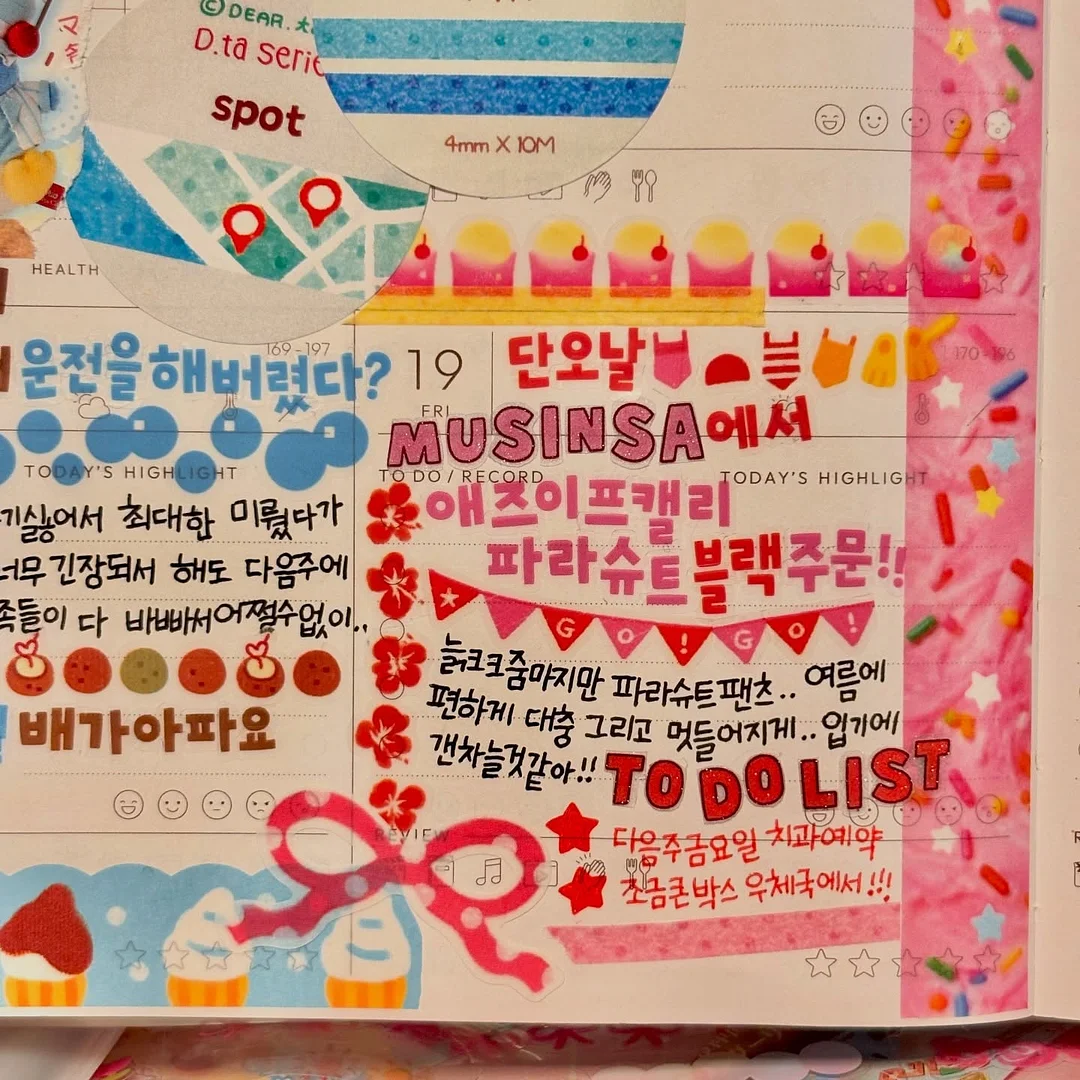 ©DEAR.
D.ta serie
spot
4mm X 10M
HEALTH
169-197
운전을해버렸다?
TODAY'S HIGHLIGHT
기싫어서 최대한 미뤘다가
너무긴장되서 해도 다음주에
족들이 다 바빠서어쩔수없이..
배가아파요
19
FRI
170-196
단오날
MUSINSA에서
TO DO / RECORD
TODAY'S HIGHLIGHT
애즈이프캘리
파라슈트블랙주문!!
GO!GO!
늙크크줌마지만 파라슈트팬츠.. 여름에
편하게 대충 그리고 멋들어지게.. 입기에
갠차늘것같아!!
TO DO LIST
REVIEW
다음주금요일 치과예약
조금큰박스 우체국에서!!!